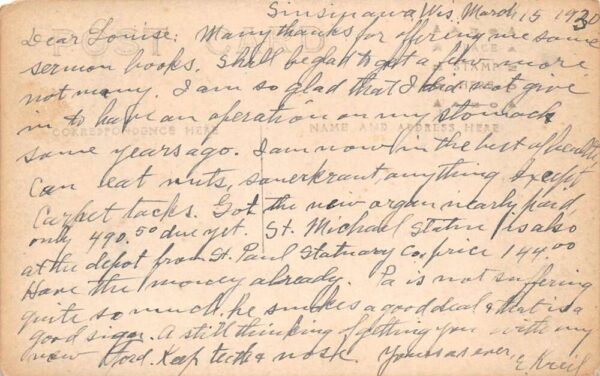 Sinsinawa, Wis. March 15 1930
Dear Louise: Many thanks for offering me some
sermon books. Shall be glad to get a few more
not many. I am so glad that I did not give
in to have an operation on my stomach
some years ago. I am now in the best of health
Can eat nuts, sauerkraut anything Except
Carpet tacks. Got the new organ nearly paid
only 490.50 due yet. St. Michael Statue is also
at the depot from St. Paul Statuary Co, price 144.00
Have the money already. Pa is not suffering
quite so much. he smokes a good deal & that is a
good sign. A still thinking of getting you with my
new Ford. Keep teeth & nose. Yours as ever,
E Kreil
POST CARD
PLACE
STAMP
HERE
CORRESPONDENCE HERE
NAME AND ADDRESS HERE